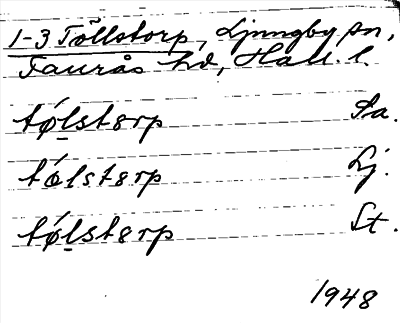 1-3 Töllstorp, Ljungby sn,
Faurås hd, Hall. l.
tǿlstɵrp Sa.
tǿlstɵrp Lj.
tǿlstɵrp St.
1948